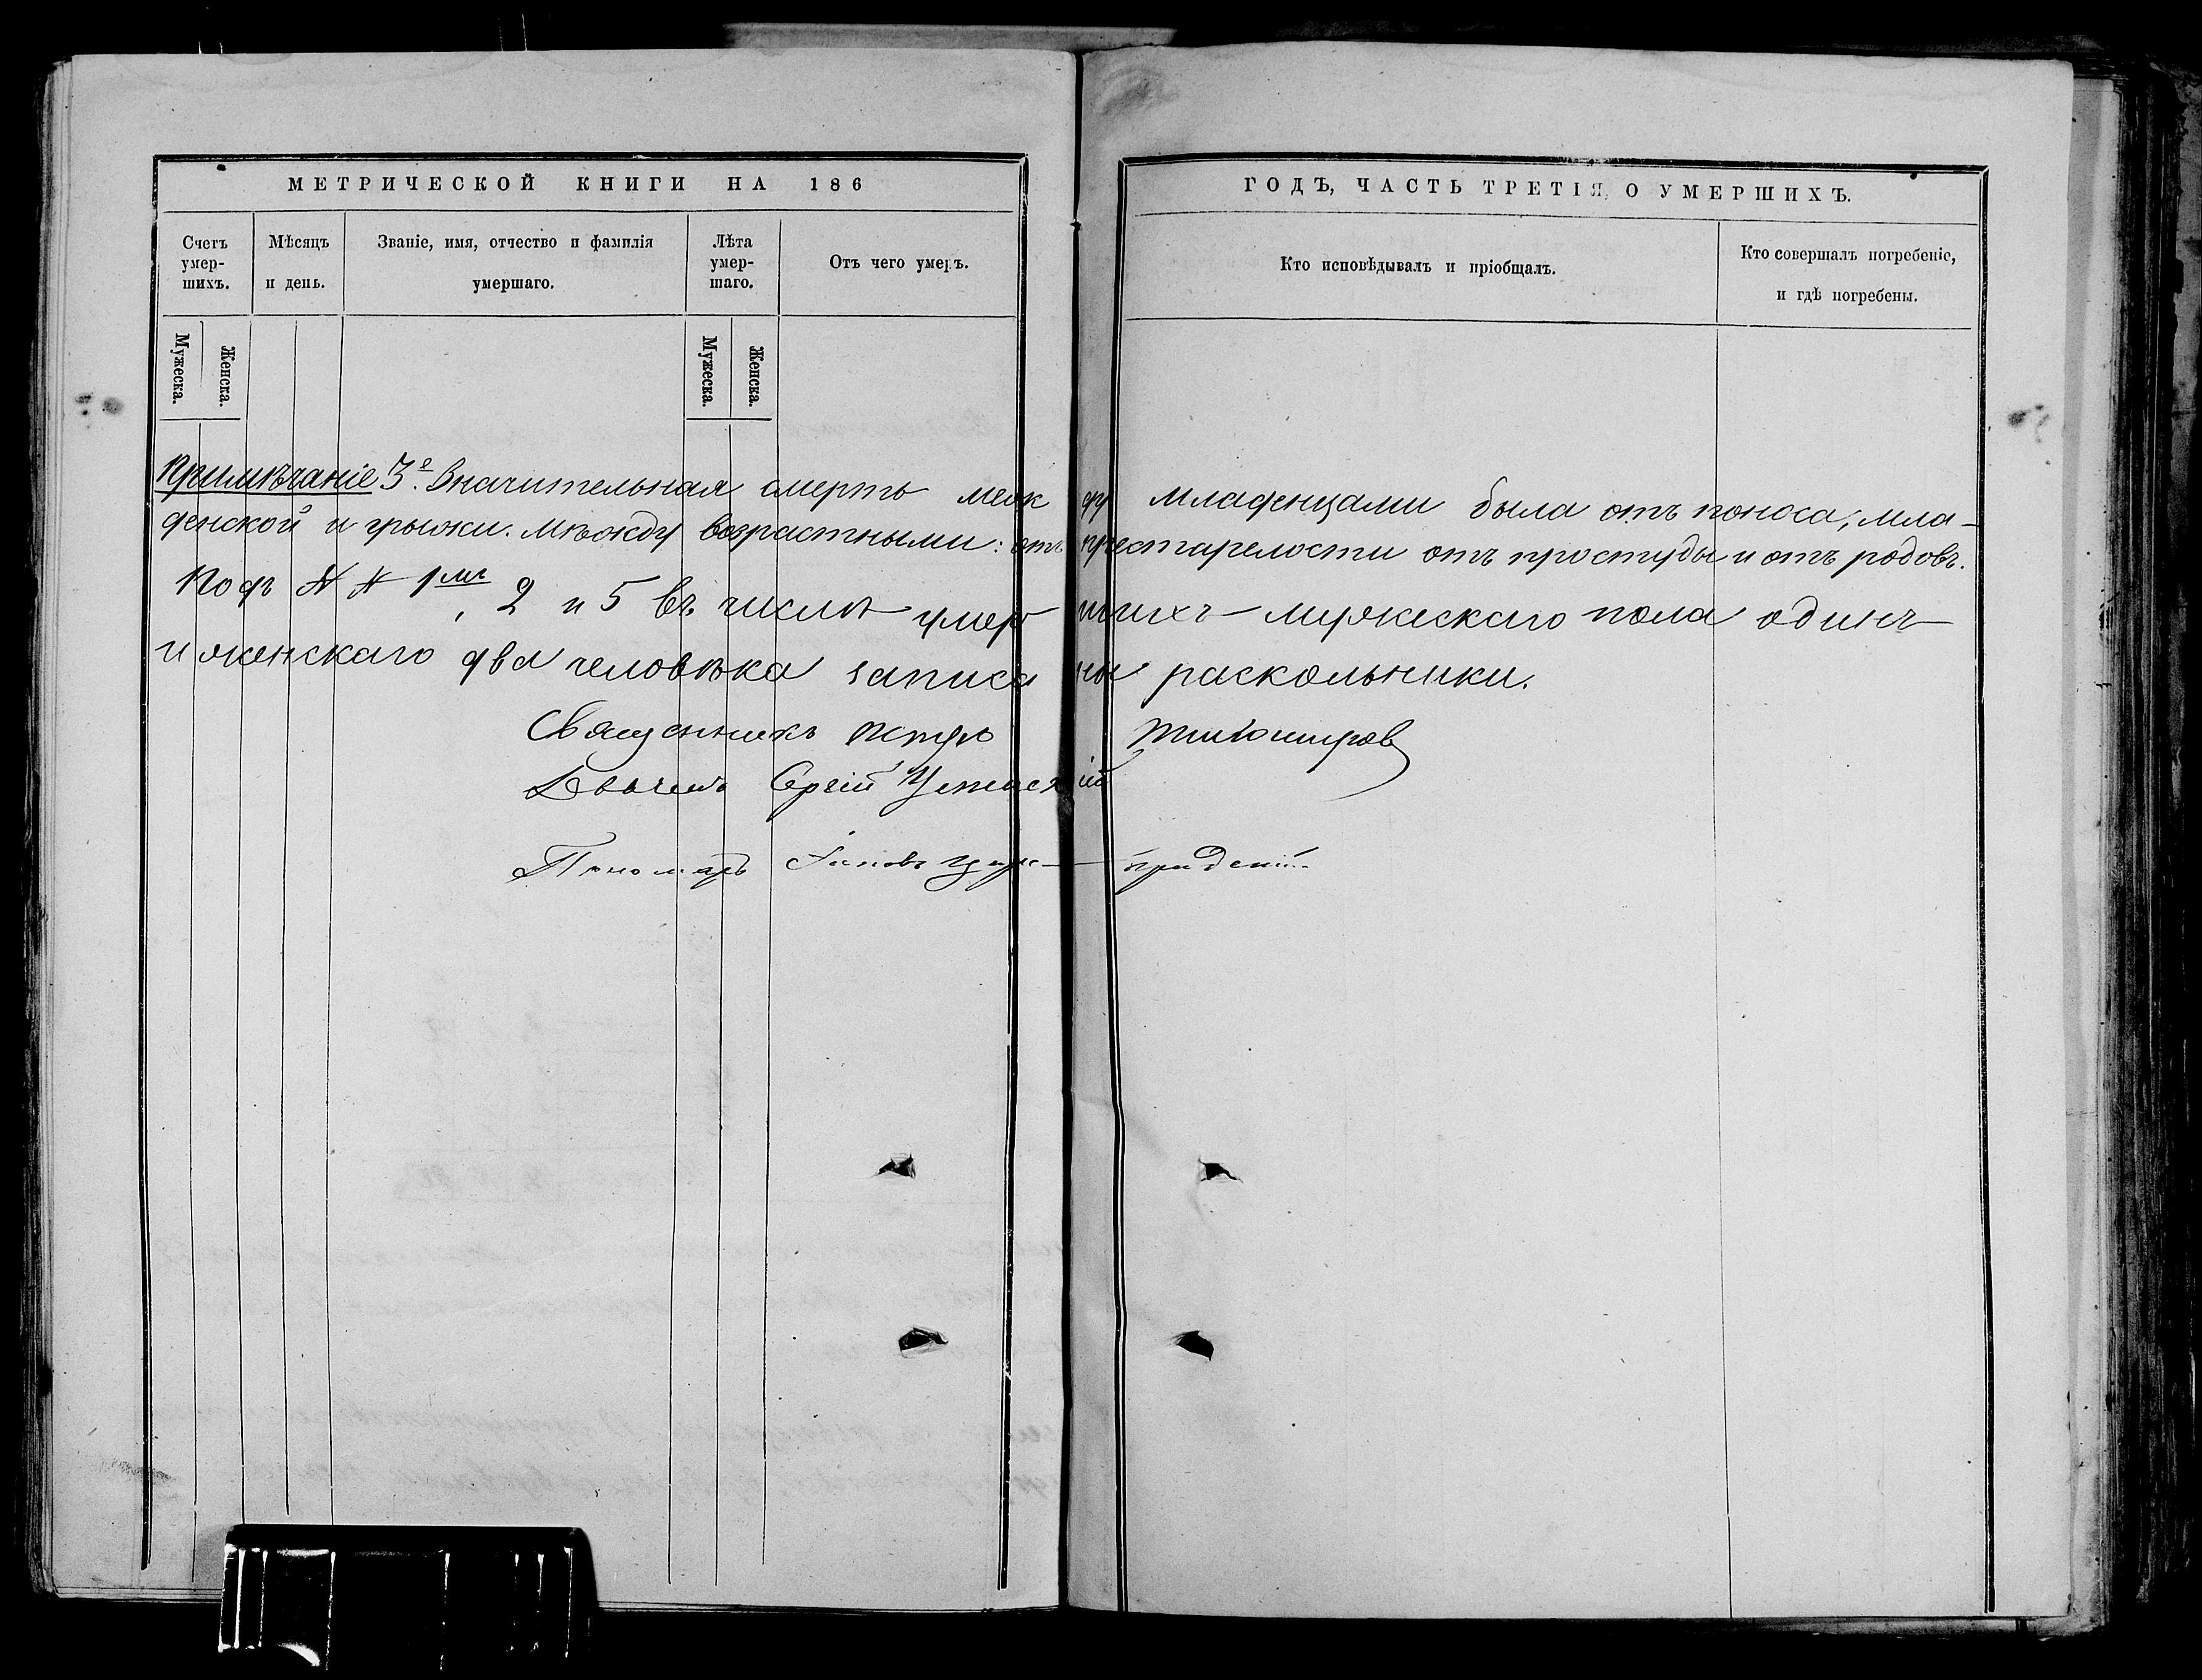 МЕТРИЧЕСКОЙ КНИГИ НА 186
ГОДЪ, ЧАСТЬ ТРЕТІЯ, О УМЕРШИХЪ.
Счетъ умер-шихъ.
Мѣсяцъ и день.
Званіе, имя, отчество и фамилія умершаго.
Лѣта умер-шаго.
Отъ чего умеръ.
Кто исповѣдывалъ и пріобщалъ.
Кто совершалъ погребеніе, и гдѣ погребены.
Мужеска.
Женска.
Мужеска.
Женска.
Примѣчаніе 3е. Значительная смерть между младенцами была отъ поноса, мла-
денской и грыжи. Мѣжду возрастными: отъ престарелости отъ простуды и отъ родовъ.
Подъ N N 1мъ, 2 и 5 въ числѣ умершихъ мужескаго пола одинъ
и женскаго два человѣка записаны раскольники.
Священникъ Петръ
Дьячекъ Сергій
Пономарь